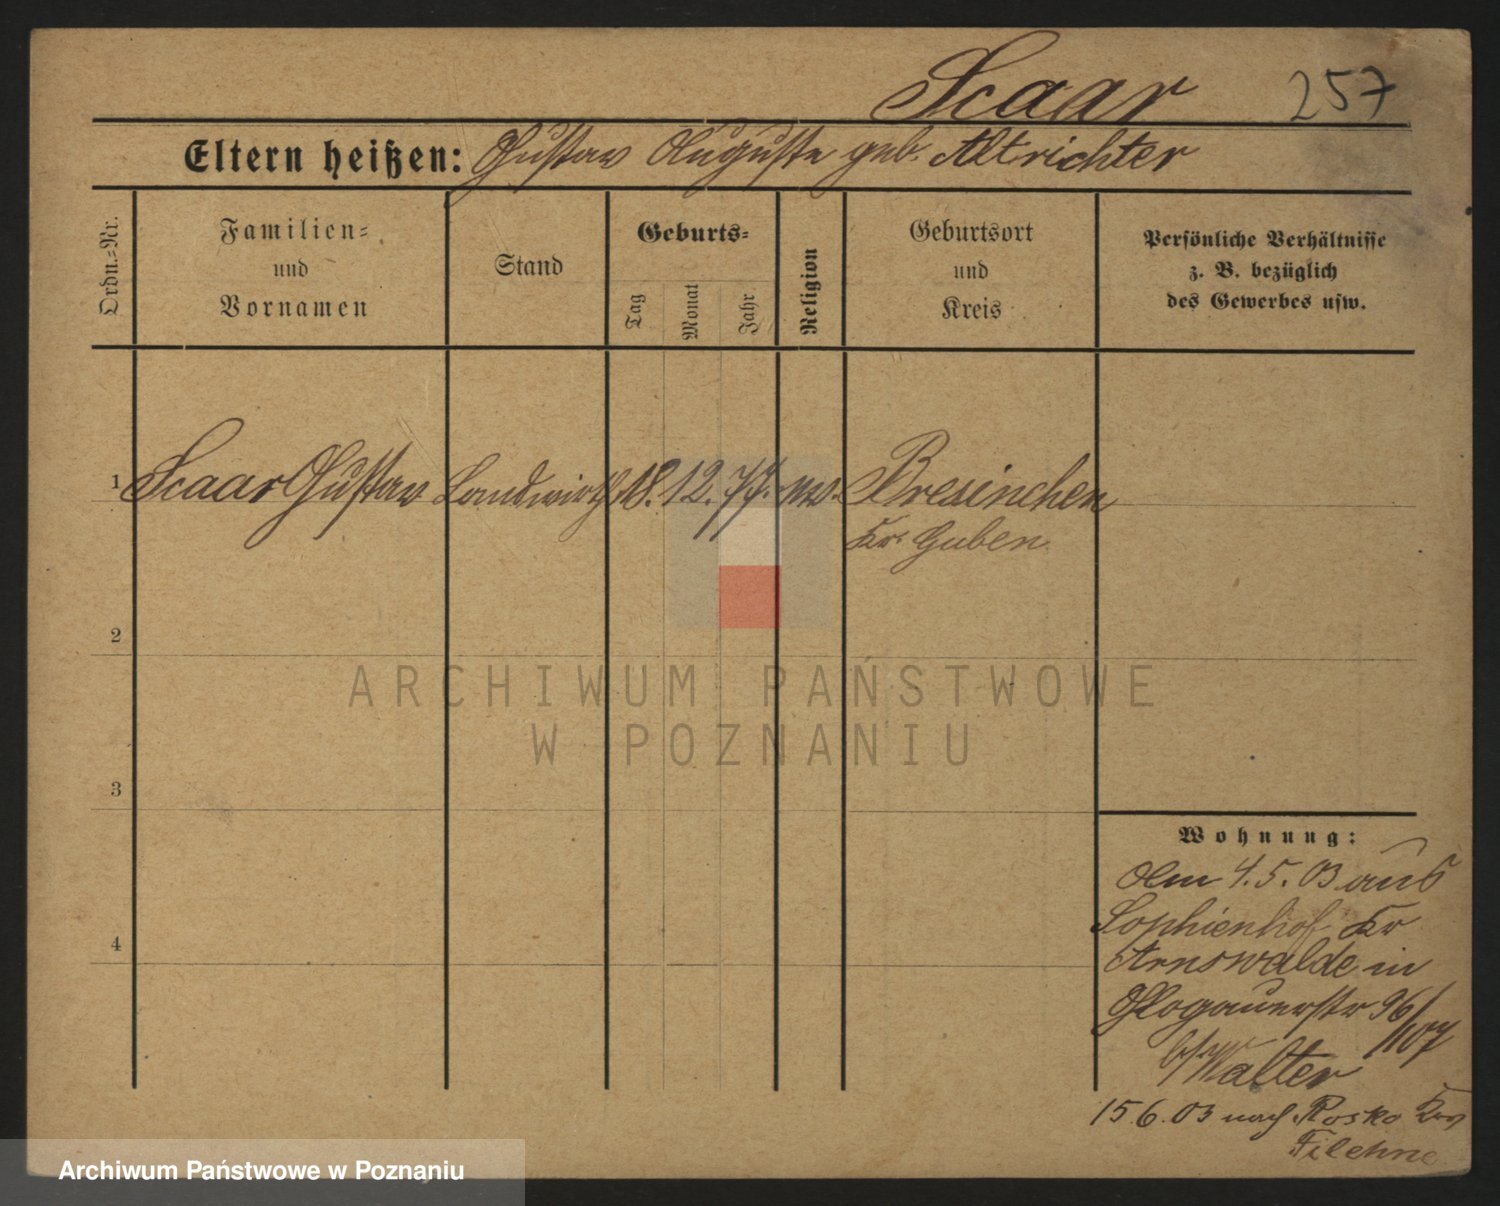 Scaar 257
Eltern heißen: Gustav Auguste geb. Altrichter
Ordn.-Nr.
Familien-
und
Vornamen
Stand
Geburts-
Tag
Monat
Jahr
Religion
Geburtsort
und
Kreis
Persönliche Verhältnisse
z. B. bezüglich
des Gewerbes usw.
1 Scaar Gustav Landwirth 18. 12. 77. ev. Bresinchen
Kr. Guben
2
3
4
Wohnung:
Am 4.5.03 aus
Sophienhof Kr
Arnswalde in
Glogauerstr 96/107
b/ Walter
15.6.03 nach Rosko Krs
Filehne
ARCHIWUM PAŃSTWOWE
W POZNANIU
Archiwum Państwowe w Poznaniu